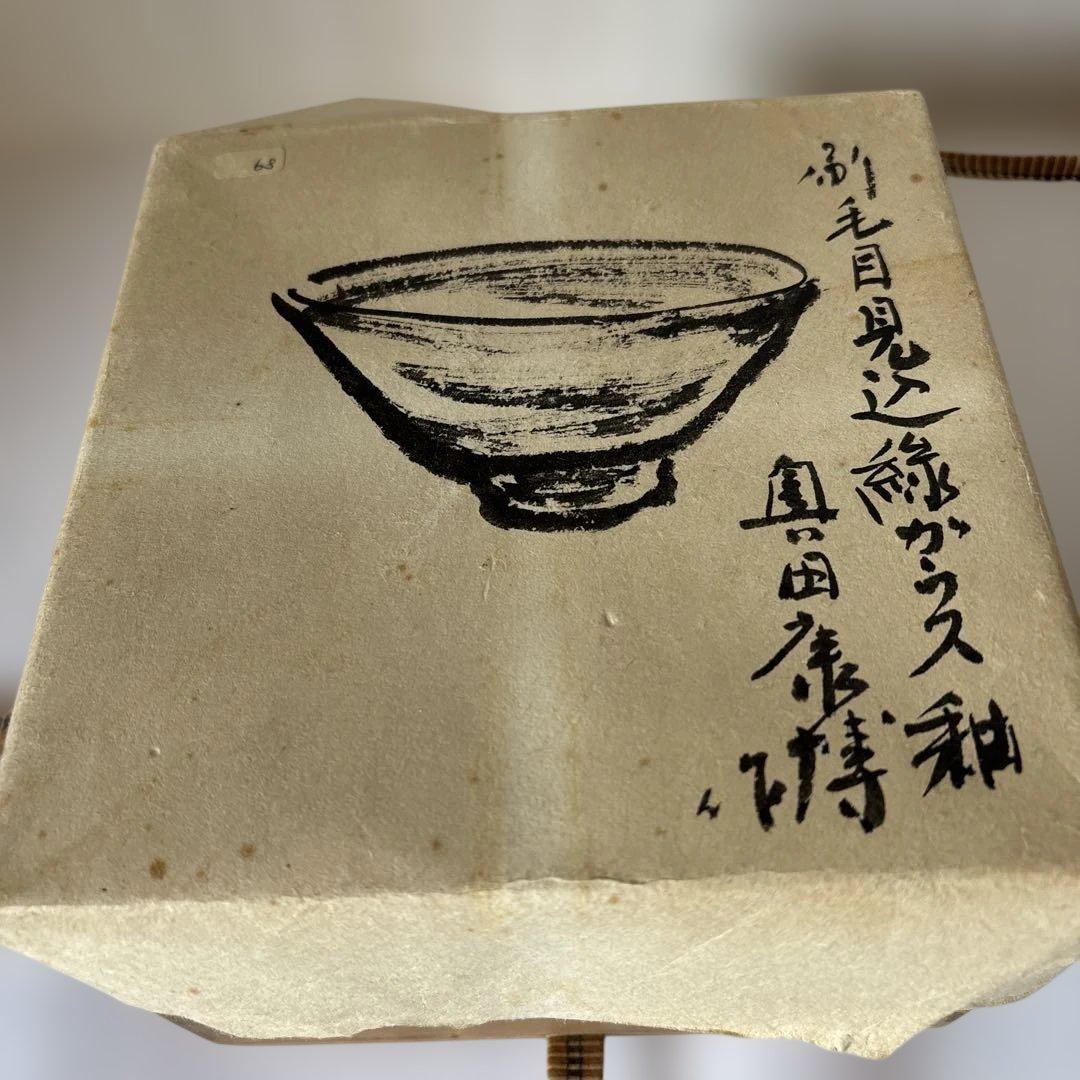 刷毛目見込緑ガラス釉
奥田康博作
68